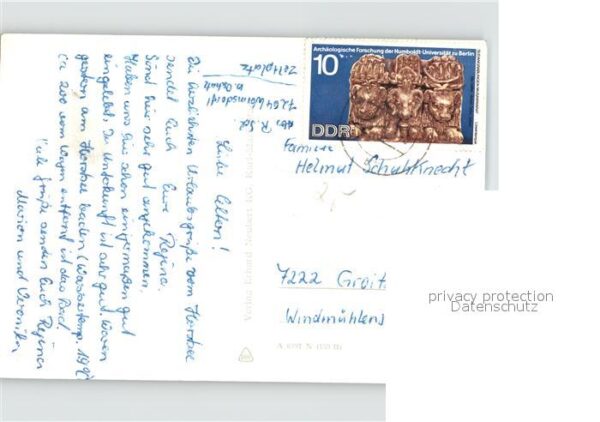 Archäologische Forschung der Humboldt-Universität zu Berlin
10
DDR
Familie
Helmut Schuhknecht
7222 Groitz
Windmühlens
privacy protection
Datenschutz
Zeltplatz
7264 Wermsdorf
Abs. R. Sch.
Liebe Eltern!
Die herzlichsten Urlaubsgrüße vom Horstsee
sendet Euch Eure Regina.
Sind hier sehr gut angekommen.
Haben uns hier schon einigermaßen gut
eingelebt, Unterkunft ist sehr gut. Waren
gestern am Horstsee baden (Wassertemp. 19°)
ca 200 vom Wagen entfernt ist das Bad.
Viele Grüße senden Euch Regina
Marion und Veronika